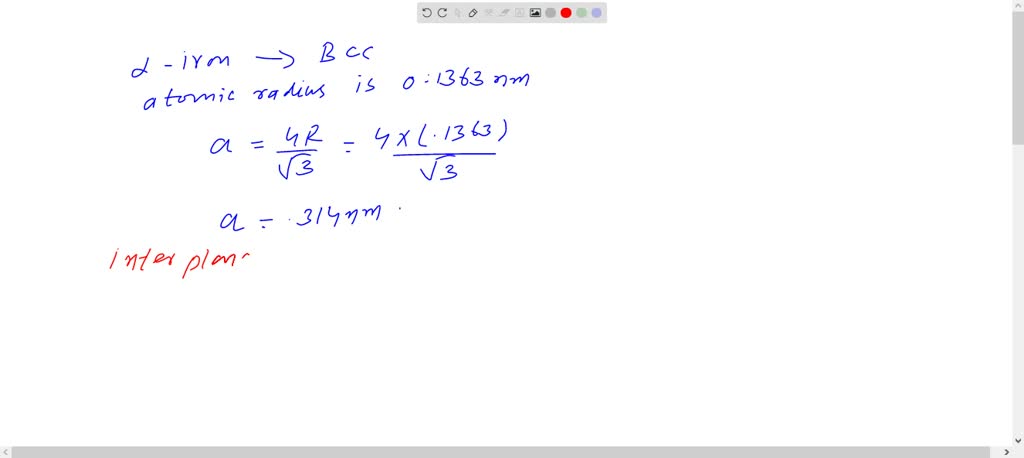 α-iron → BCC
atomic radius is 0.1363 nm
a = 4R/√3 = 4×(.1363)/√3
a = .314 nm.
inter plan